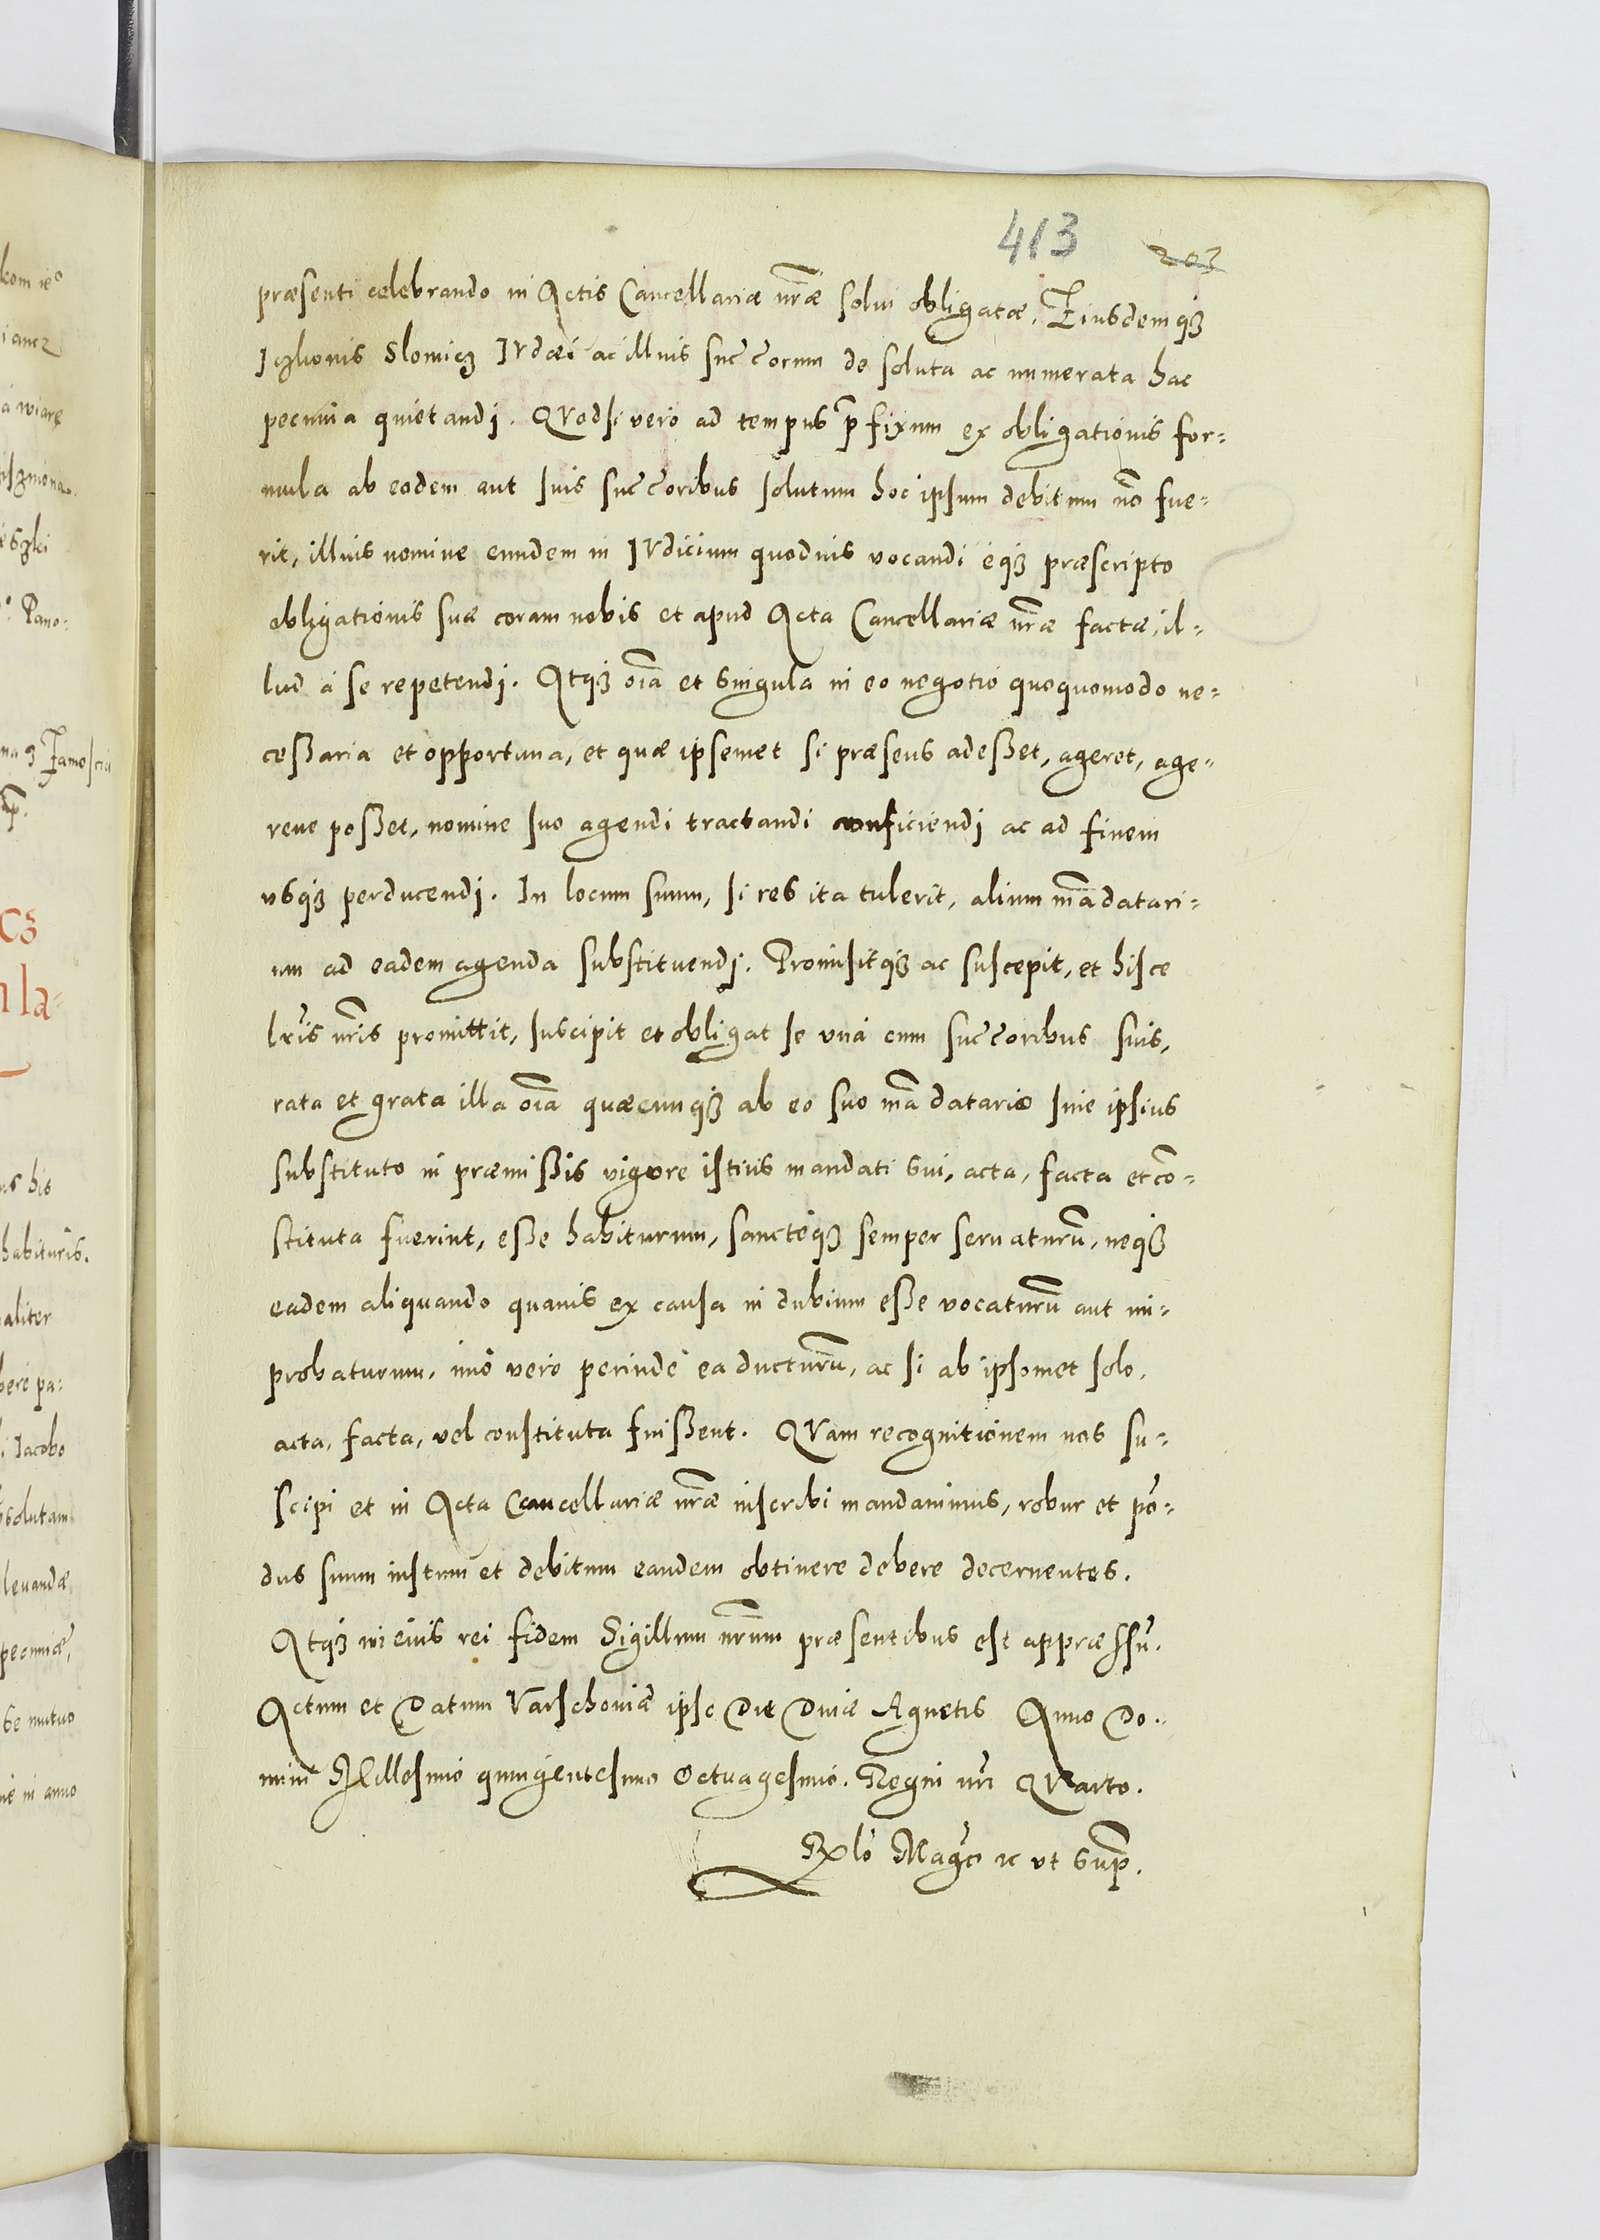 413 203
præsenti celebrando in Actis Cancellariæ nr̃æ solui obligatæ. Eiusdemq;
Iczhonis Slomicz IVdæi ac illius succ̃orum de soluta ac numerata hac
pecunia quietandi. QVodsi vero ad tempus p̃fixum ex obligationis for-
mula ab eodem aut suis succ̃oribus solutum hoc ipsum debitum nõ fue-
rit, illius nomine eundem in IVdicium quoduis vocandi eq; præscripto
obligationis suæ coram nobis et apud Acta Cancellariæ nr̃æ factæ, il-
lud à se repetendi. Atq; oĩa et singula in eo negotio quoquomodo ne-
cessaria et opportuna, et quæ ipsemet si præsens adesset, ageret, age-
reue posset, nomine suo agendi tractandi conficiendi ac ad finem
vsq; perducendi. In locum suum, si res ita tulerit, alium mãdatari-
um ad eadem agenda substituendi. Promisitq; ac suscepit, et hisce
lr̃is nr̃is promittit, suscipit et obligat se vnà cum succ̃oribus suis,
rata et grata illa oĩa quæcunq; ab eo suo mãdatario siue ipsius
substituto in præmissis vigore istius mandati sui, acta, facta et cõ-
stituta fuerint, esse habiturum, sancteq; semper seruaturũ, neq;
eadem aliquando quauis ex causa in dubium esse vocaturũ aut im-
probaturum, imò vero perinde ea ducturũ, ac si ab ipsomet solo,
acta, facta, vel constituta fuissent. QVam recognitionem nos su-
scipi et in Acta Cancellariæ nr̃æ inscribi mandauimus, robur et põ-
dus suum iustum et debitum eandem obtinere debere decernentes.
Atq; in eius rei fidem Sigillum nr̃um præsentibus est appræssũ.
Actum et Datum Varschouiæ ipso Die Diuæ Agnetis Anno Do-
mini Millesimo quingentesimo Octuagesimo. Regni nr̃i QVarto.
Rl̃o Mag̃ci ꝛc vt Sup̃.